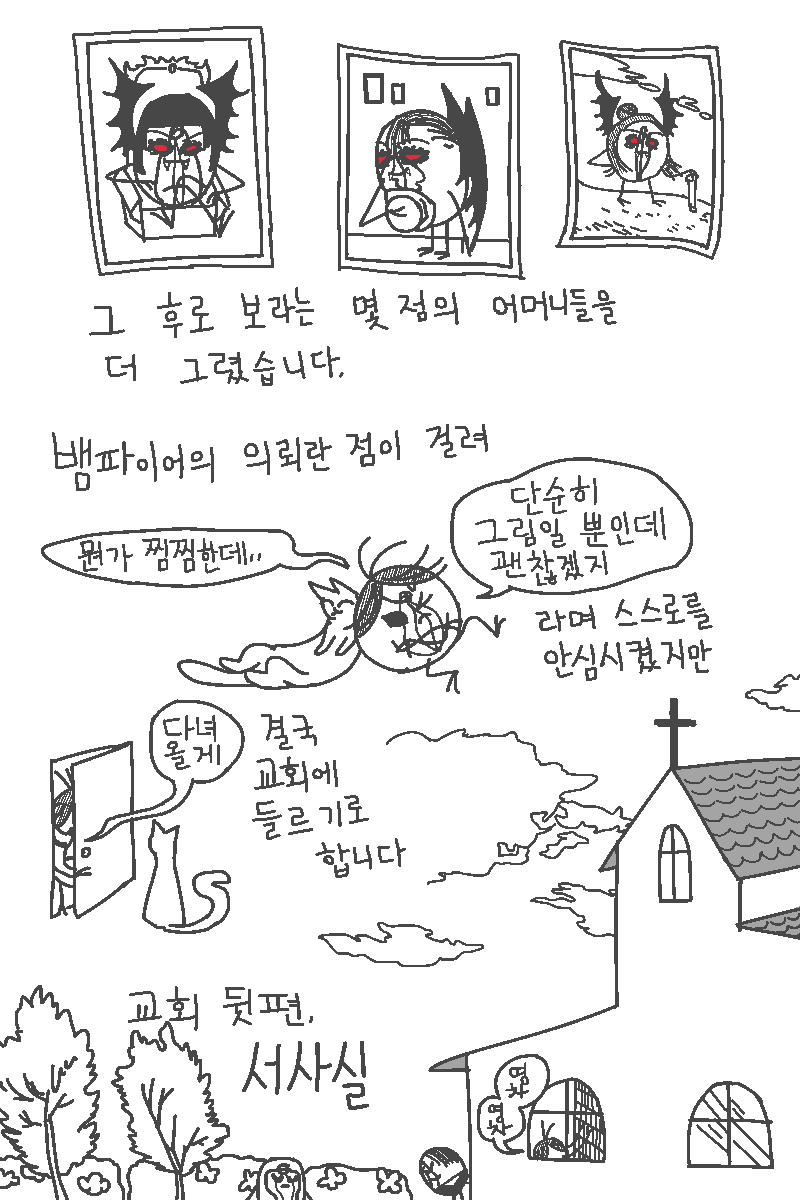 그 후로 보라는 몇 점의 어머니들을
더 그렸습니다.
뱀파이어의 의뢰란 점이 걸려
뭔가 찜찜한데..
단순히
그림일 뿐인데
괜찮겠지
라며 스스로를
안심시켰지만
다녀
올게
결국
교회에
들르기로
합니다
교회 뒷편,
서사실
영차
영차